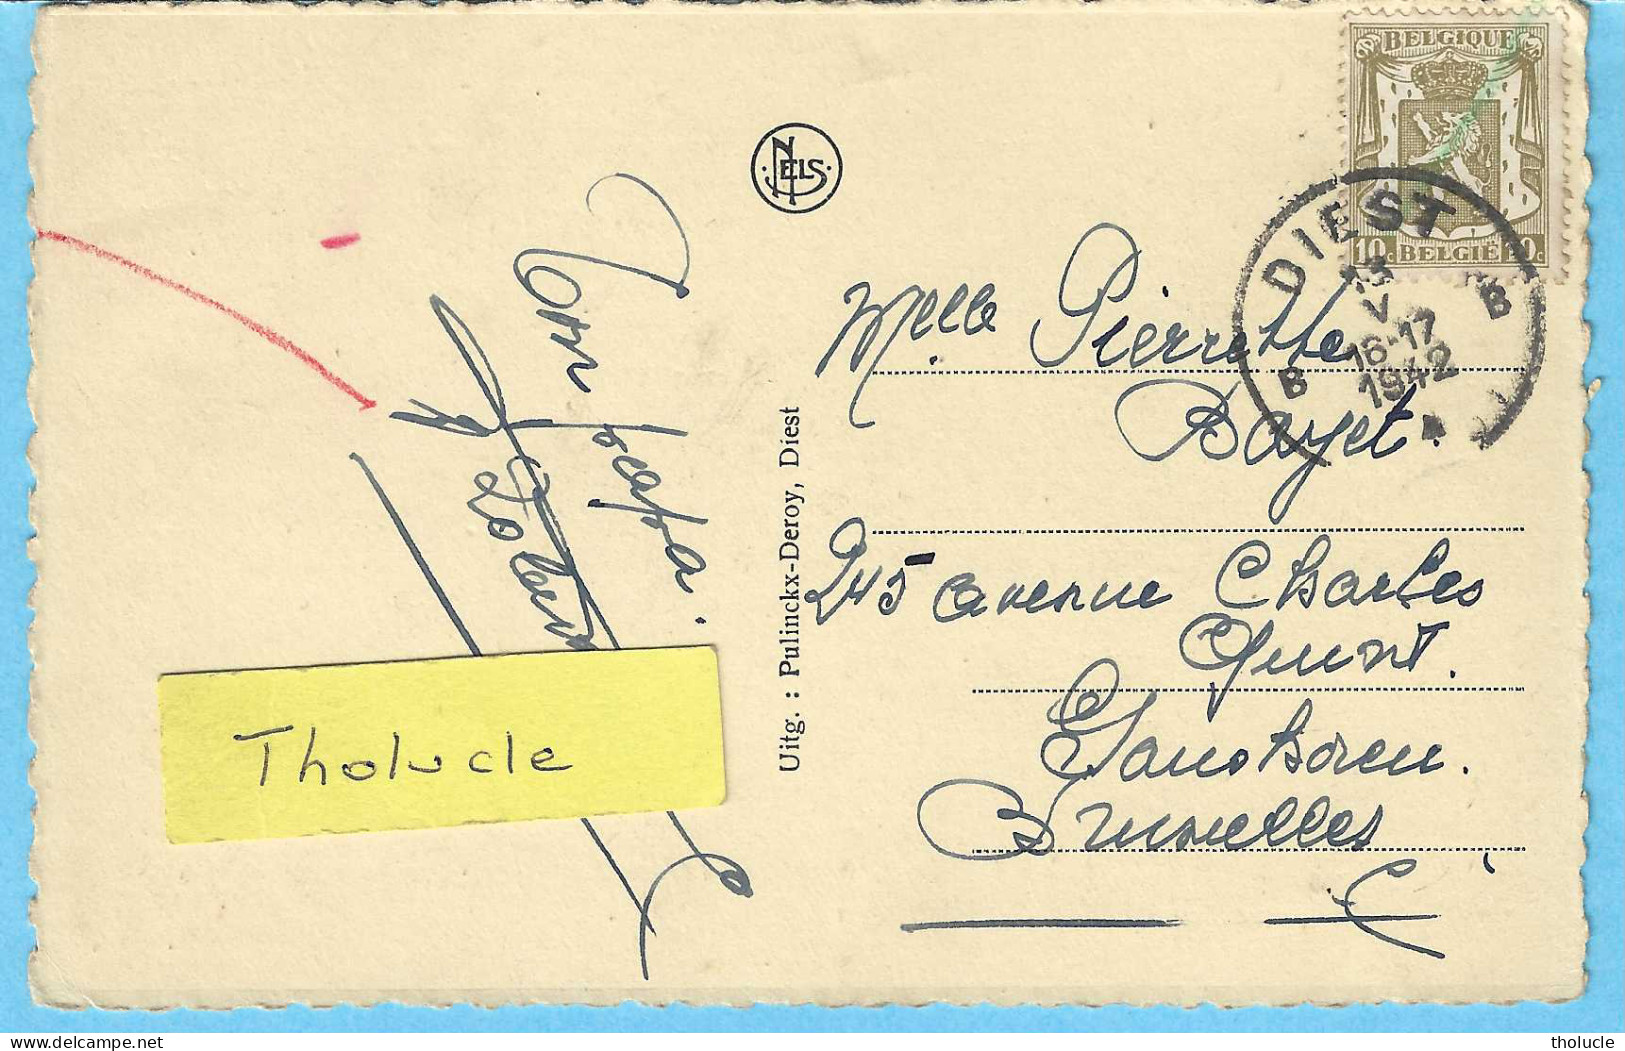 BELGIQUE
10c BELGIE 10c
DIEST
13
V
16-17
1942
B B
NELS
Ton papa.
Uitg. : Pulinckx-Deroy, Diest
Melle Pierrette
Bayet.
245 avenue Charles
Quint.
Ganshoren.
Bruxelles
Tholucle
tholucle